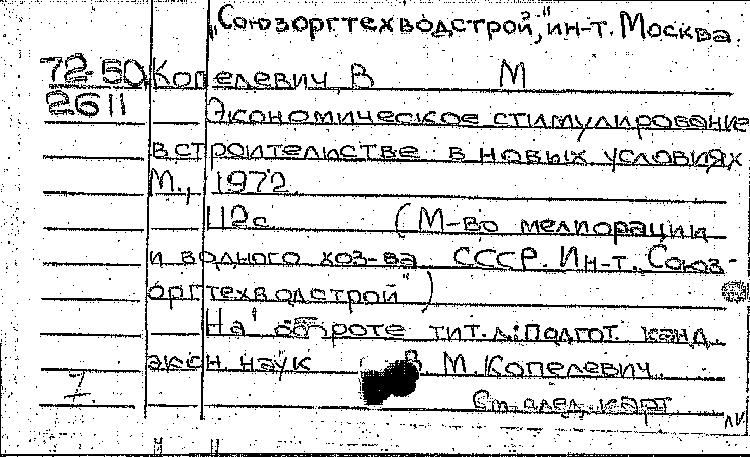 "Союзоргтехводстрой," ин-т. Москва.
72-50 Копелевич, В М
2611
Экономическое стимулирование
в строительстве в новых условиях
М., 1972.
112с. (М-во мелиорации
и водного хоз-ва СССР. Ин-т. „Союз-
оргтехводстрой")
На обороте тит.л.: Подгот. канд.
экон. наук В. М. Копелевич.
7. См. след. карт.